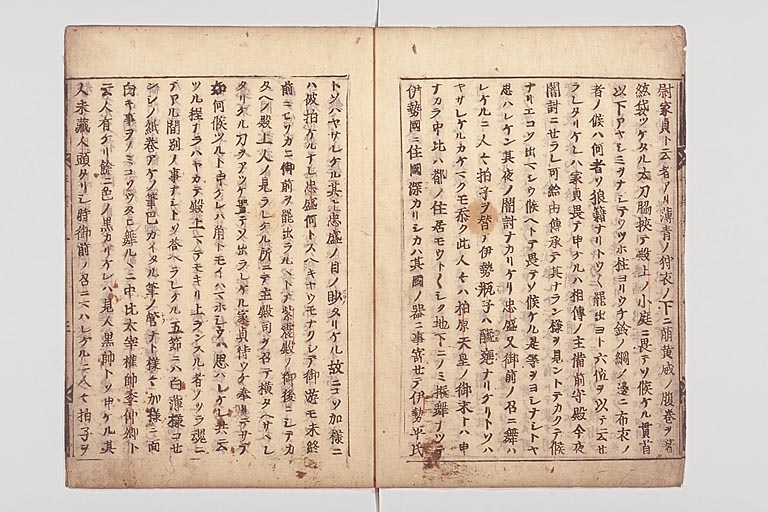 尉家貞ト云者アリ薄青ノ狩衣ノ下ニ萠黄威ノ腹巻ヲ著
絃袋ツケタル太刀脇挾テ殿上ノ小庭ニ畏テソ候ケル貫首
以下アヤシミヲナシテウツホ柱ヨリウチ鈴ノ綱ノ邊ニ布衣ノ
者ノ候ハ何者ソ狼籍ナリトウ〱罷出ヨト六位ヲ以テ云セ
ラレタリケレハ家貞畏テ申ケルハ相傳ノ主備前守殿今夜
闇討ニセラレ可給由傳承テ其ナラン様ヲ見ントテカクテ候
ナリエコソ出マシウ候ヘトテ畏テソ候ケル是等ヲヨシナシトヤ
思ハレケン其夜ノ闇討ナカリケリ忠盛又御前ノ召ニ舞ハ
レケルニ人〻拍子ヲ替テ伊勢瓶子ハ醯甕ナリケリトソハ
ヤサレケルカケマクモ忝ク此人〻ハ柏原天皇ノ御末トハ申
ナカラ中比ハ都ノ住居モウト〱シク地下ニノミ振舞ナツテ
伊勢國ニ住國深カリシカハ其國ノ器ニ事寄セテ伊勢平氏
トソハヤサレケル其上忠盛ノ目ノ眇タリケル故ニコソ加様ニ
ハ被拍ケルナレ忠盛何トスヘキヤウモナクシテ御遊モ未終
前ニヒソカニ御前ヲ罷出ラルヽトテ紫宸殿ノ御後ニシテカ
タヘノ殿上人ノ見ラレケル所ニテ主殿司ヲ召テ横タヘサヽレ
タリケル刀ヲアツケ置テソ出ラレケル家貞待ウケ奉リテサテ
如何候ツルト申ケレハ角トモイハマホシウハ思ハレケレ共云
ツル程ナラハヤカテ殿上マテモキリ上ランスル者ノツラ魂ニ
テアル間別ノ事ナシトソ答ヘラレケル五節ニハ白薄様コセ
ンシノ紙巻アケノ筆巴カイタル筆ノ管ナト様〻加様ニ面
白キ事ヲノミコソウタヒ舞ルヽニ中比太宰權帥季仲卿ト
云人有ケリ餘ニ色ノ黒カリケレハ見人黒帥トソ申ケル其
人未藏人頭タリシ時御前ノ召ニ舞ハレケルニ人〻拍子ヲ